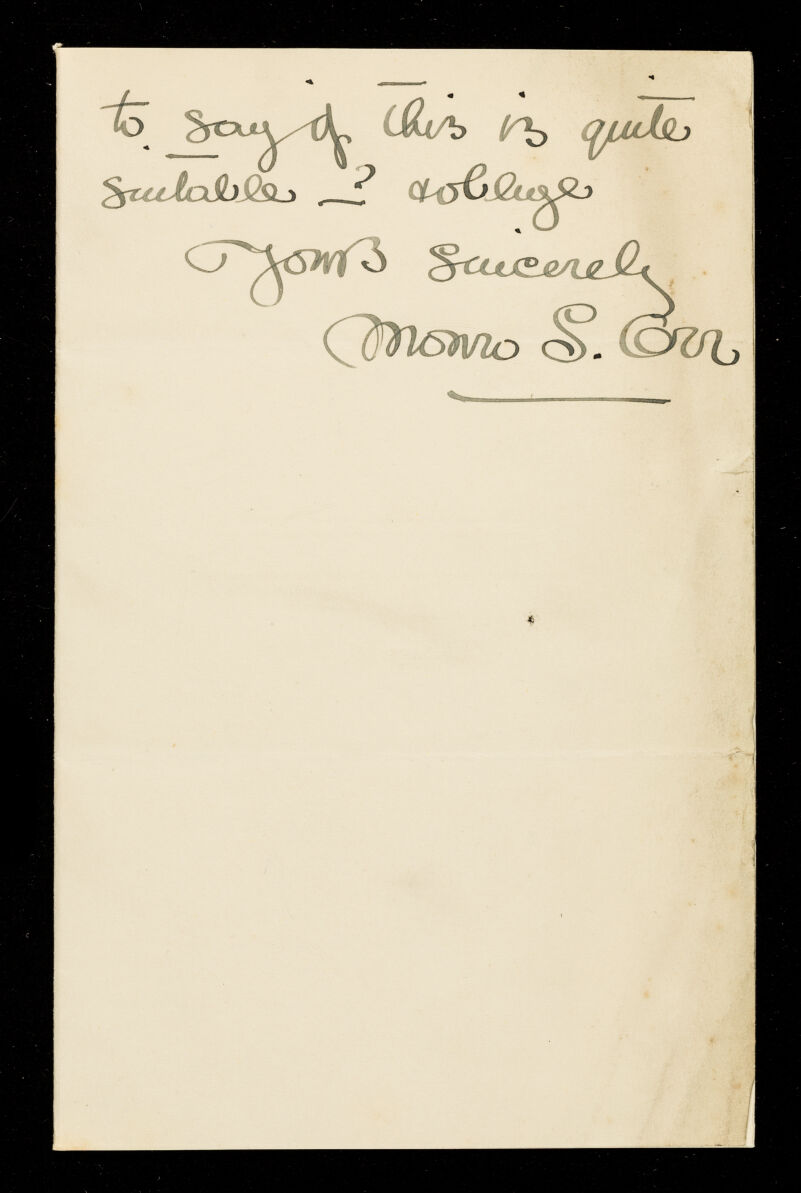 to say if this is quite
suitable —? & oblige
Yours sincerely
Monro S. Orr